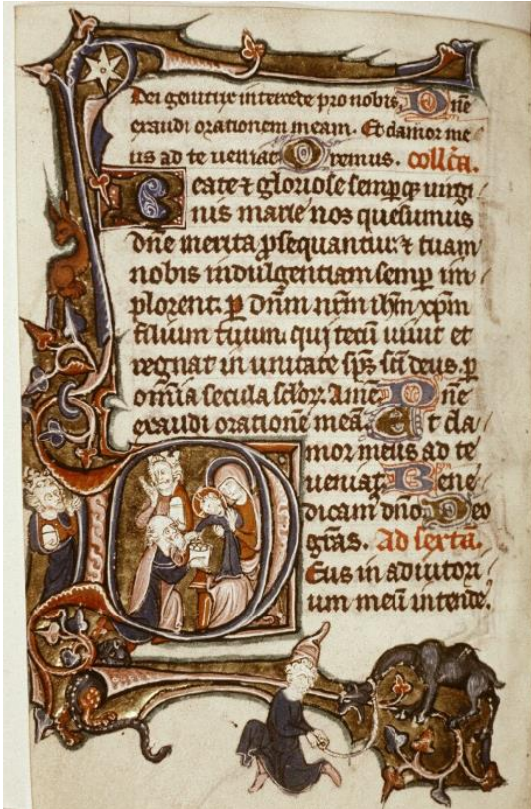 Dei genitrix intercede pro nobis. Dne
exaudi orationem meam. Et clamor me
us ad te ueniat. Oremus. collcā.
Beate ⁊ gloriose sempqꝫ uirgi
nis marie nos quesumus
dñe merita ꝓsequantur. ⁊ tuam
nobis indulgentiam semꝑ im
plorent. ꝑ dnm nrm ihm xpm
filium tuum. qui tecū uiuit et
regnat in unitate sps sci deus. ꝑ
omīa secula sclorꝝ. Amen. Dne
exaudi orationē meā. Et cla
mor meus ad te
ueniat. Bene
dicam dno. Deo
grās. Ad sextā.
Deus in adiutori
um meū intende.